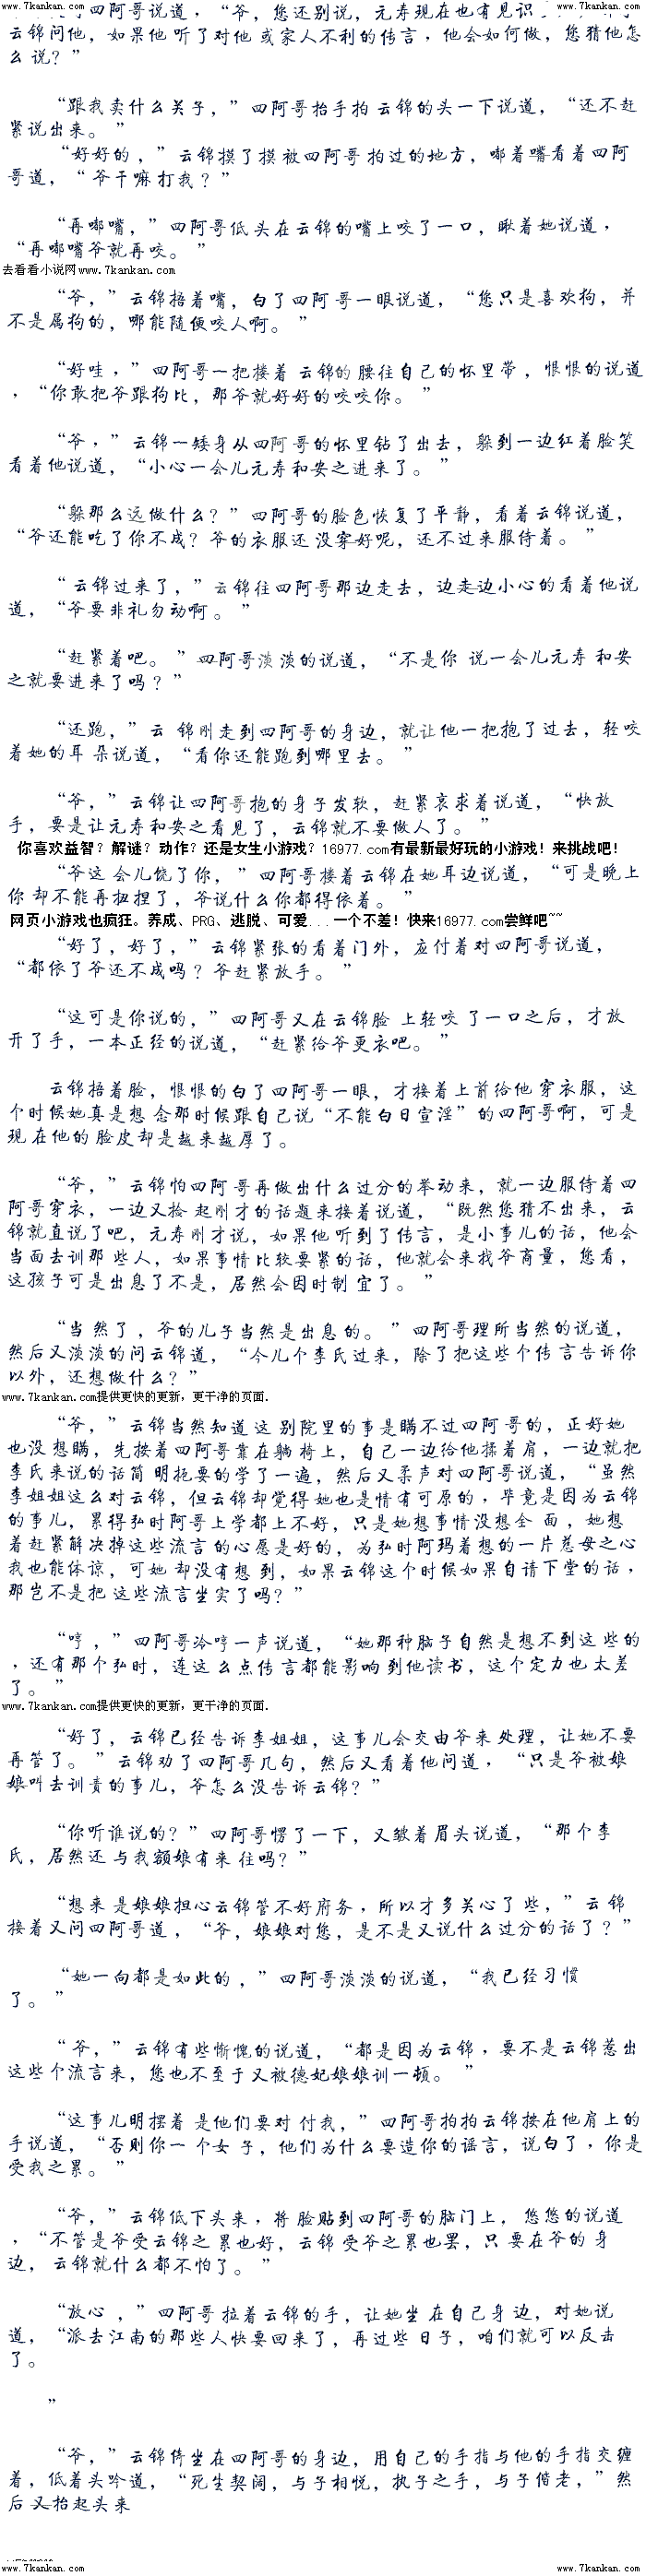 www.7kankan.com www.7kankan.com
四阿哥说道，“爷，您还别说，元寿现在也有见识
云锦问他，如果他听了对他或家人不利的传言，他会如何做，您猜他怎
么说？”
“跟我卖什么关子，”四阿哥抬手拍云锦的头一下说道，“还不赶
紧说出来。”
“好好的，”云锦摸了摸被四阿哥拍过的地方，嘟着嘴看着四阿
哥道，“爷干嘛打我？”
“再嘟嘴，”四阿哥低头在云锦的嘴上咬了一口，瞅着她说道，
“再嘟嘴爷就再咬。”
去看看小说网www.7kankan.com
“爷，”云锦捂着嘴，白了四阿哥一眼说道，“您只是喜欢狗，并
不是属狗的，哪能随便咬人啊。”
“好哇，”四阿哥一把搂着云锦的腰往自己的怀里带，恨恨的说道
，“你敢把爷跟狗比，那爷就好好的咬咬你。”
“爷，”云锦一矮身从四阿哥的怀里钻了出去，躲到一边红着脸笑
看着他说道，“小心一会儿元寿和安之进来了。”
“躲那么远做什么？”四阿哥的脸色恢复了平静，看着云锦说道，
“爷还能吃了你不成？爷的衣服还没穿好呢，还不过来服侍着。”
“云锦过来了，”云锦往四阿哥那边走去，边走边小心的看着他说
道，“爷要非礼勿动啊。”
“赶紧着吧。”四阿哥淡淡的说道，“不是你说一会儿元寿和安
之就要进来了吗？”
“还跑，”云锦刚走到四阿哥的身边，就让他一把抱了过去，轻咬
着她的耳朵说道，“看你还能跑到哪里去。”
“爷，”云锦让四阿哥抱的身子发软，赶紧哀求着说道，“快放
手，要是让元寿和安之看见了，云锦就不要做人了。”
你喜欢益智？解谜？动作？还是女生小游戏？16977.com有最新最好玩的小游戏！来挑战吧！
“爷这会儿饶了你，”四阿哥搂着云锦在她耳边说道，“可是晚上
你却不能再扭捏了，爷说什么你都得依着。”
网页小游戏也疯狂。养成、PRG、逃脱、可爱...一个不差！快来16977.com尝鲜吧~~
“好了，好了，”云锦紧张的看着门外，应付着对四阿哥说道，
“都依了爷还不成吗？爷赶紧放手。”
“这可是你说的，”四阿哥又在云锦脸上轻咬了一口之后，才放
开了手，一本正经的说道，“赶紧给爷更衣吧。”
云锦捂着脸，恨恨的白了四阿哥一眼，才接着上前给他穿衣服，这
个时候她真是想念那时候跟自己说“不能白日宣淫”的四阿哥啊，可是
现在他的脸皮却是越来越厚了。
“爷，”云锦怕四阿哥再做出什么过分的举动来，就一边服侍着四
阿哥穿衣，一边又捡起刚才的话题来接着说道，“既然您猜不出来，云
锦就直说了吧，元寿刚才说，如果他听到了传言，是小事儿的话，他会
当面去训那些人，如果事情比较要紧的话，他就会来找爷商量，您看，
这孩子可是出息了不是，居然会因时制宜了。”
“当然了，爷的儿子当然是出息的。”四阿哥理所当然的说道，
然后又淡淡的问云锦道，“今儿个李氏过来，除了把这些个传言告诉你
以外，还想做什么？”
www.7kankan.com提供更快的更新，更干净的页面.
“爷，”云锦当然知道这别院里的事是瞒不过四阿哥的，正好她
也没想瞒，先按着四阿哥靠在躺椅上，自己一边给他揉着肩，一边就把
李氏来说的话简明扼要的学了一遍，然后又柔声对四阿哥说道，“虽然
李姐姐这么对云锦，但云锦却觉得她也是情有可原的，毕竟是因为云锦
的事儿，累得弘时阿哥上学都上不好，只是她想事情没想全面，她想
着赶紧解决掉这些流言的心愿是好的，为弘时阿玛着想的一片慈母之心
我也能体谅，可她却没有想到，如果云锦这个时候如果自请下堂的话，
那岂不是把这些流言坐实了吗？”
“哼，”四阿哥冷哼一声说道，“她那种脑子自然是想不到这些的
，还有那个弘时，连这么点传言都能影响到他读书，这个定力也太差
了。”
www.7kankan.com提供更快的更新，更干净的页面.
“好了，云锦已经告诉李姐姐，这事儿会交由爷来处理，让她不要
再管了。”云锦劝了四阿哥几句，然后又看着他问道，“只是爷被娘
娘叫去训责的事儿，爷怎么没告诉云锦？”
“你听谁说的？”四阿哥愣了一下，又皱着眉头说道，“那个李
氏，居然还与我额娘有来往吗？”
“想来是娘娘担心云锦管不好府务，所以才多关心了些，”云锦
接着又问四阿哥道，“爷，娘娘对您，是不是又说什么过分的话了？”
“她一向都是如此的，”四阿哥淡淡的说道，“我已经习惯
了。”
“爷，”云锦有些惭愧的说道，“都是因为云锦，要不是云锦惹出
这些个流言来，您也不至于又被德妃娘娘训一顿。”
“这事儿明摆着是他们要对付我，”四阿哥拍拍云锦按在他肩上的
手说道，“否则你一个女子，他们为什么要造你的谣言，说白了，你是
受我之累。”
“爷，”云锦低下头来，将脸贴到四阿哥的脑门上，悠悠的说道
，“不管是爷受云锦之累也好，云锦受爷之累也罢，只要在爷的身
边，云锦就什么都不怕了。”
“放心，”四阿哥拉着云锦的手，让她坐在自己身边，对她说
道，“派去江南的那些人快要回来了，再过些日子，咱们就可以反击
了。
”
“爷，”云锦倚坐在四阿哥的身边，用自己的手指与他的手指交缠
着，低着头吟道，“死生契阔，与子相悦，执子之手，与子偕老，”然
后又抬起头来
www.7kankan.com www.7kankan.com